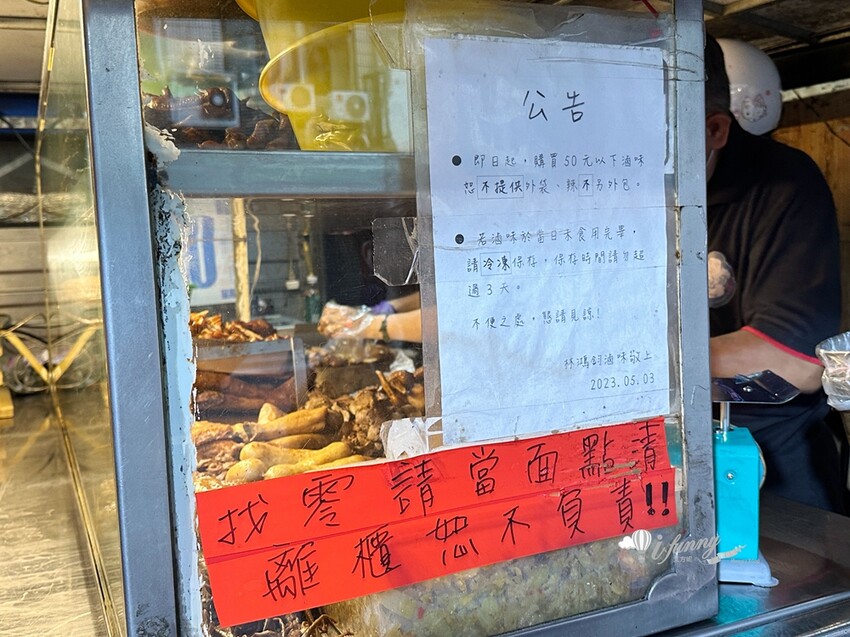 公告
● 即日起，購買50元以下滷味
恕不提供外袋、辣不另外包。
● 若滷味於當日未食用完畢，
請冷凍保存，保存時間請勿超
過3天。
不便之處，懇請見諒!
林鴻鈞滷味敬上
2023.05.03
找零請當面點清
離櫃恕不負責!!
ifunny